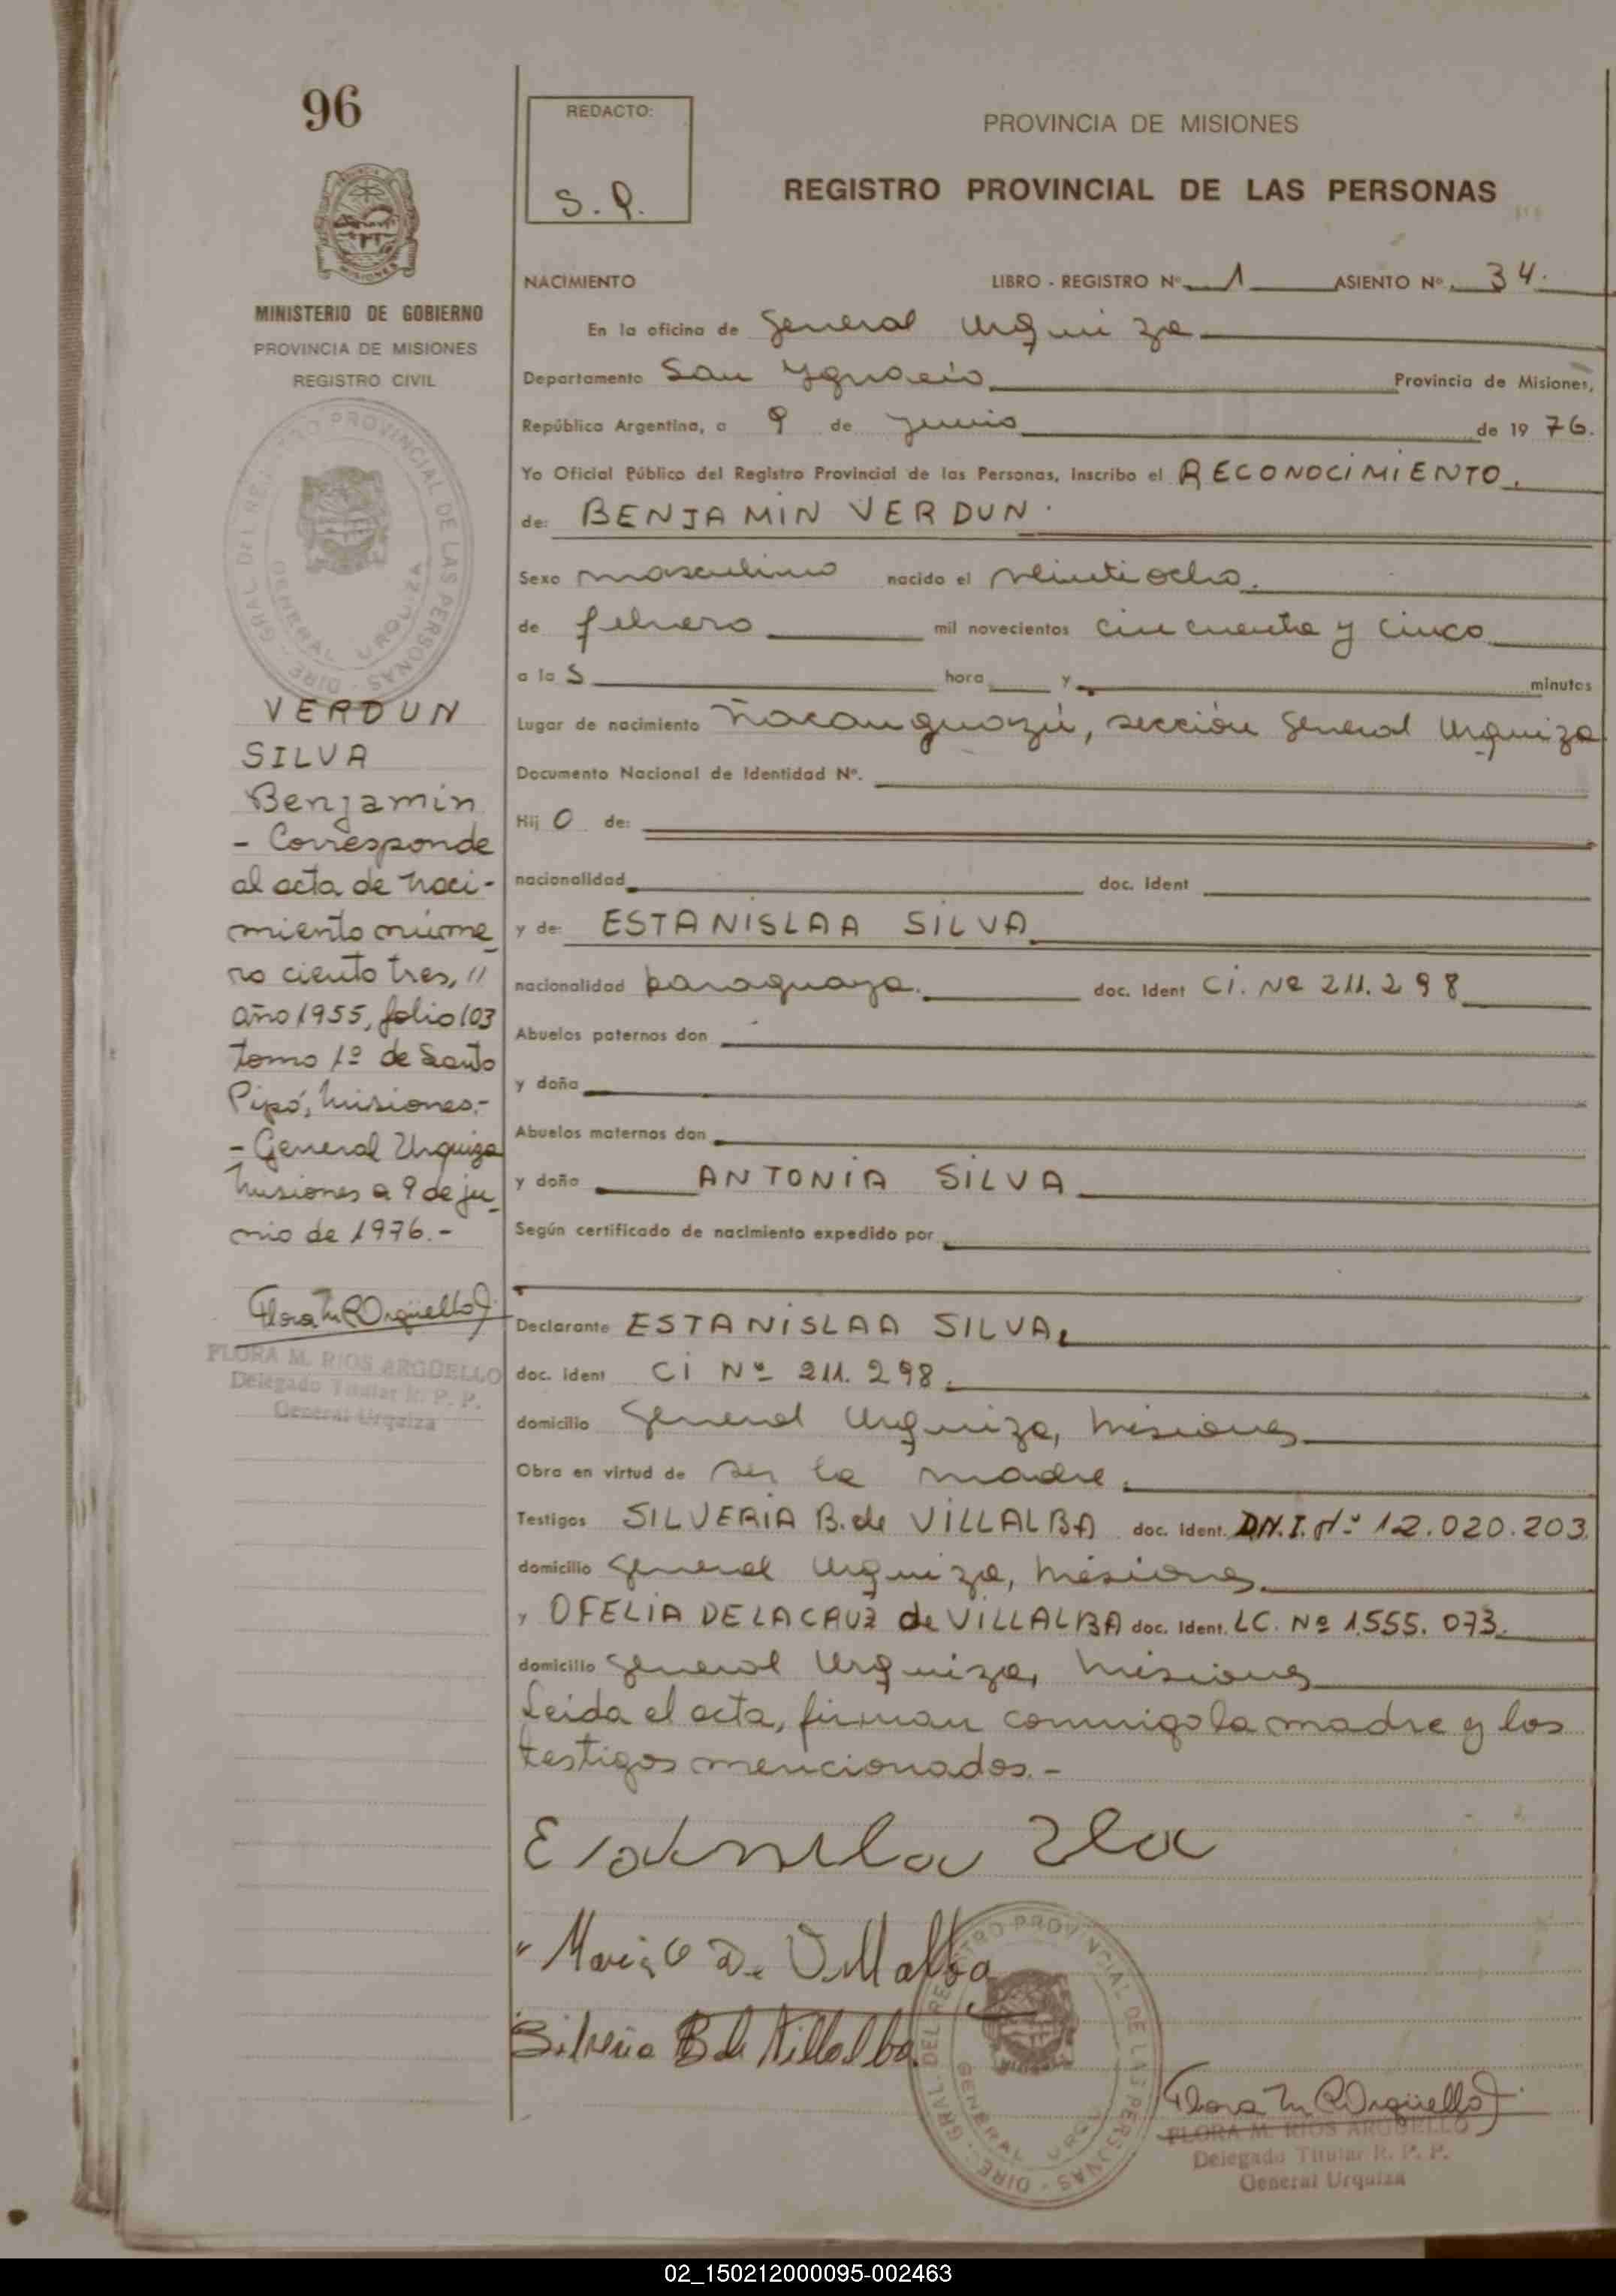 96
REDACTO:
S. P.
PROVINCIA DE MISIONES
REGISTRO PROVINCIAL DE LAS PERSONAS
MINISTERIO DE GOBIERNO
PROVINCIA DE MISIONES
REGISTRO CIVIL
DIRE - GRAL DEL REGISTRO PROVINCIAL DE LAS PERSONAS
GENERAL URQUIZA
VERDUN
SILVA
Benjamin
- Corresponde
al acta de naci-
miento núme
ro ciento tres, //
año 1955, folio 103
tomo 1º de Santo
Pipó, Misiones.-
- General Urquiza
Misiones a 9 de ju_
nio de 1976.-
Flora M R Argüello
FLORA M. RIOS ARGUELLO
Delegado Titular R. P. P.
General Urquiza
NACIMIENTO LIBRO - REGISTRO Nº 1 ASIENTO Nº 34.
En la oficina de General Urquiza
Departamento San Ygnacio Provincia de Misiones,
República Argentina, a 9 de junio de 1976.
Yo Oficial Público del Registro Provincial de las Personas, Inscribo el RECONOCIMIENTO.
de: BENJAMIN VERDUN.
Sexo masculino nacido el veintiocho.
de febrero mil novecientos cincuenta y cinco
a la S hora y minutos
Lugar de nacimiento Ñacanguazú, sección General Urquiza
Documento Nacional de Identidad Nº.
Hij O de:
nacionalidad doc. Ident
y de: ESTANISLAA SILVA
nacionalidad paraguaya. doc. Ident CI. Nº 211.298
Abuelos paternos don
y doña
Abuelos maternos don
y doña ANTONIA SILVA
Según certificado de nacimiento expedido por
Declarante ESTANISLAA SILVA.
doc. Ident CI Nº 211.298.
domicilio General Urquiza, Misiones
Obra en virtud de ser la madre.
Testigos SILVERIA B. de VILLALBA doc. Ident. DN.I. Nº 12.020.203.
domicilio General Urquiza, Misiones
y OFELIA DE LA CRUZ de VILLALBA doc. Ident. LC. Nº 1.555.073.
domicilio General Urquiza, Misiones
Leida el acta, firman conmigo la madre y los
testigos mencionados.-
María O De Villalba
Silveria B de Villalba
DIRE - GRAL DEL REGISTRO PROVINCIAL DE LAS PERSONAS
GENERAL URQUIZA
Flora M R Argüello
FLORA M. RIOS ARGUELLO
Delegado Titular R. P. P.
General Urquiza
02_150212000095-002463